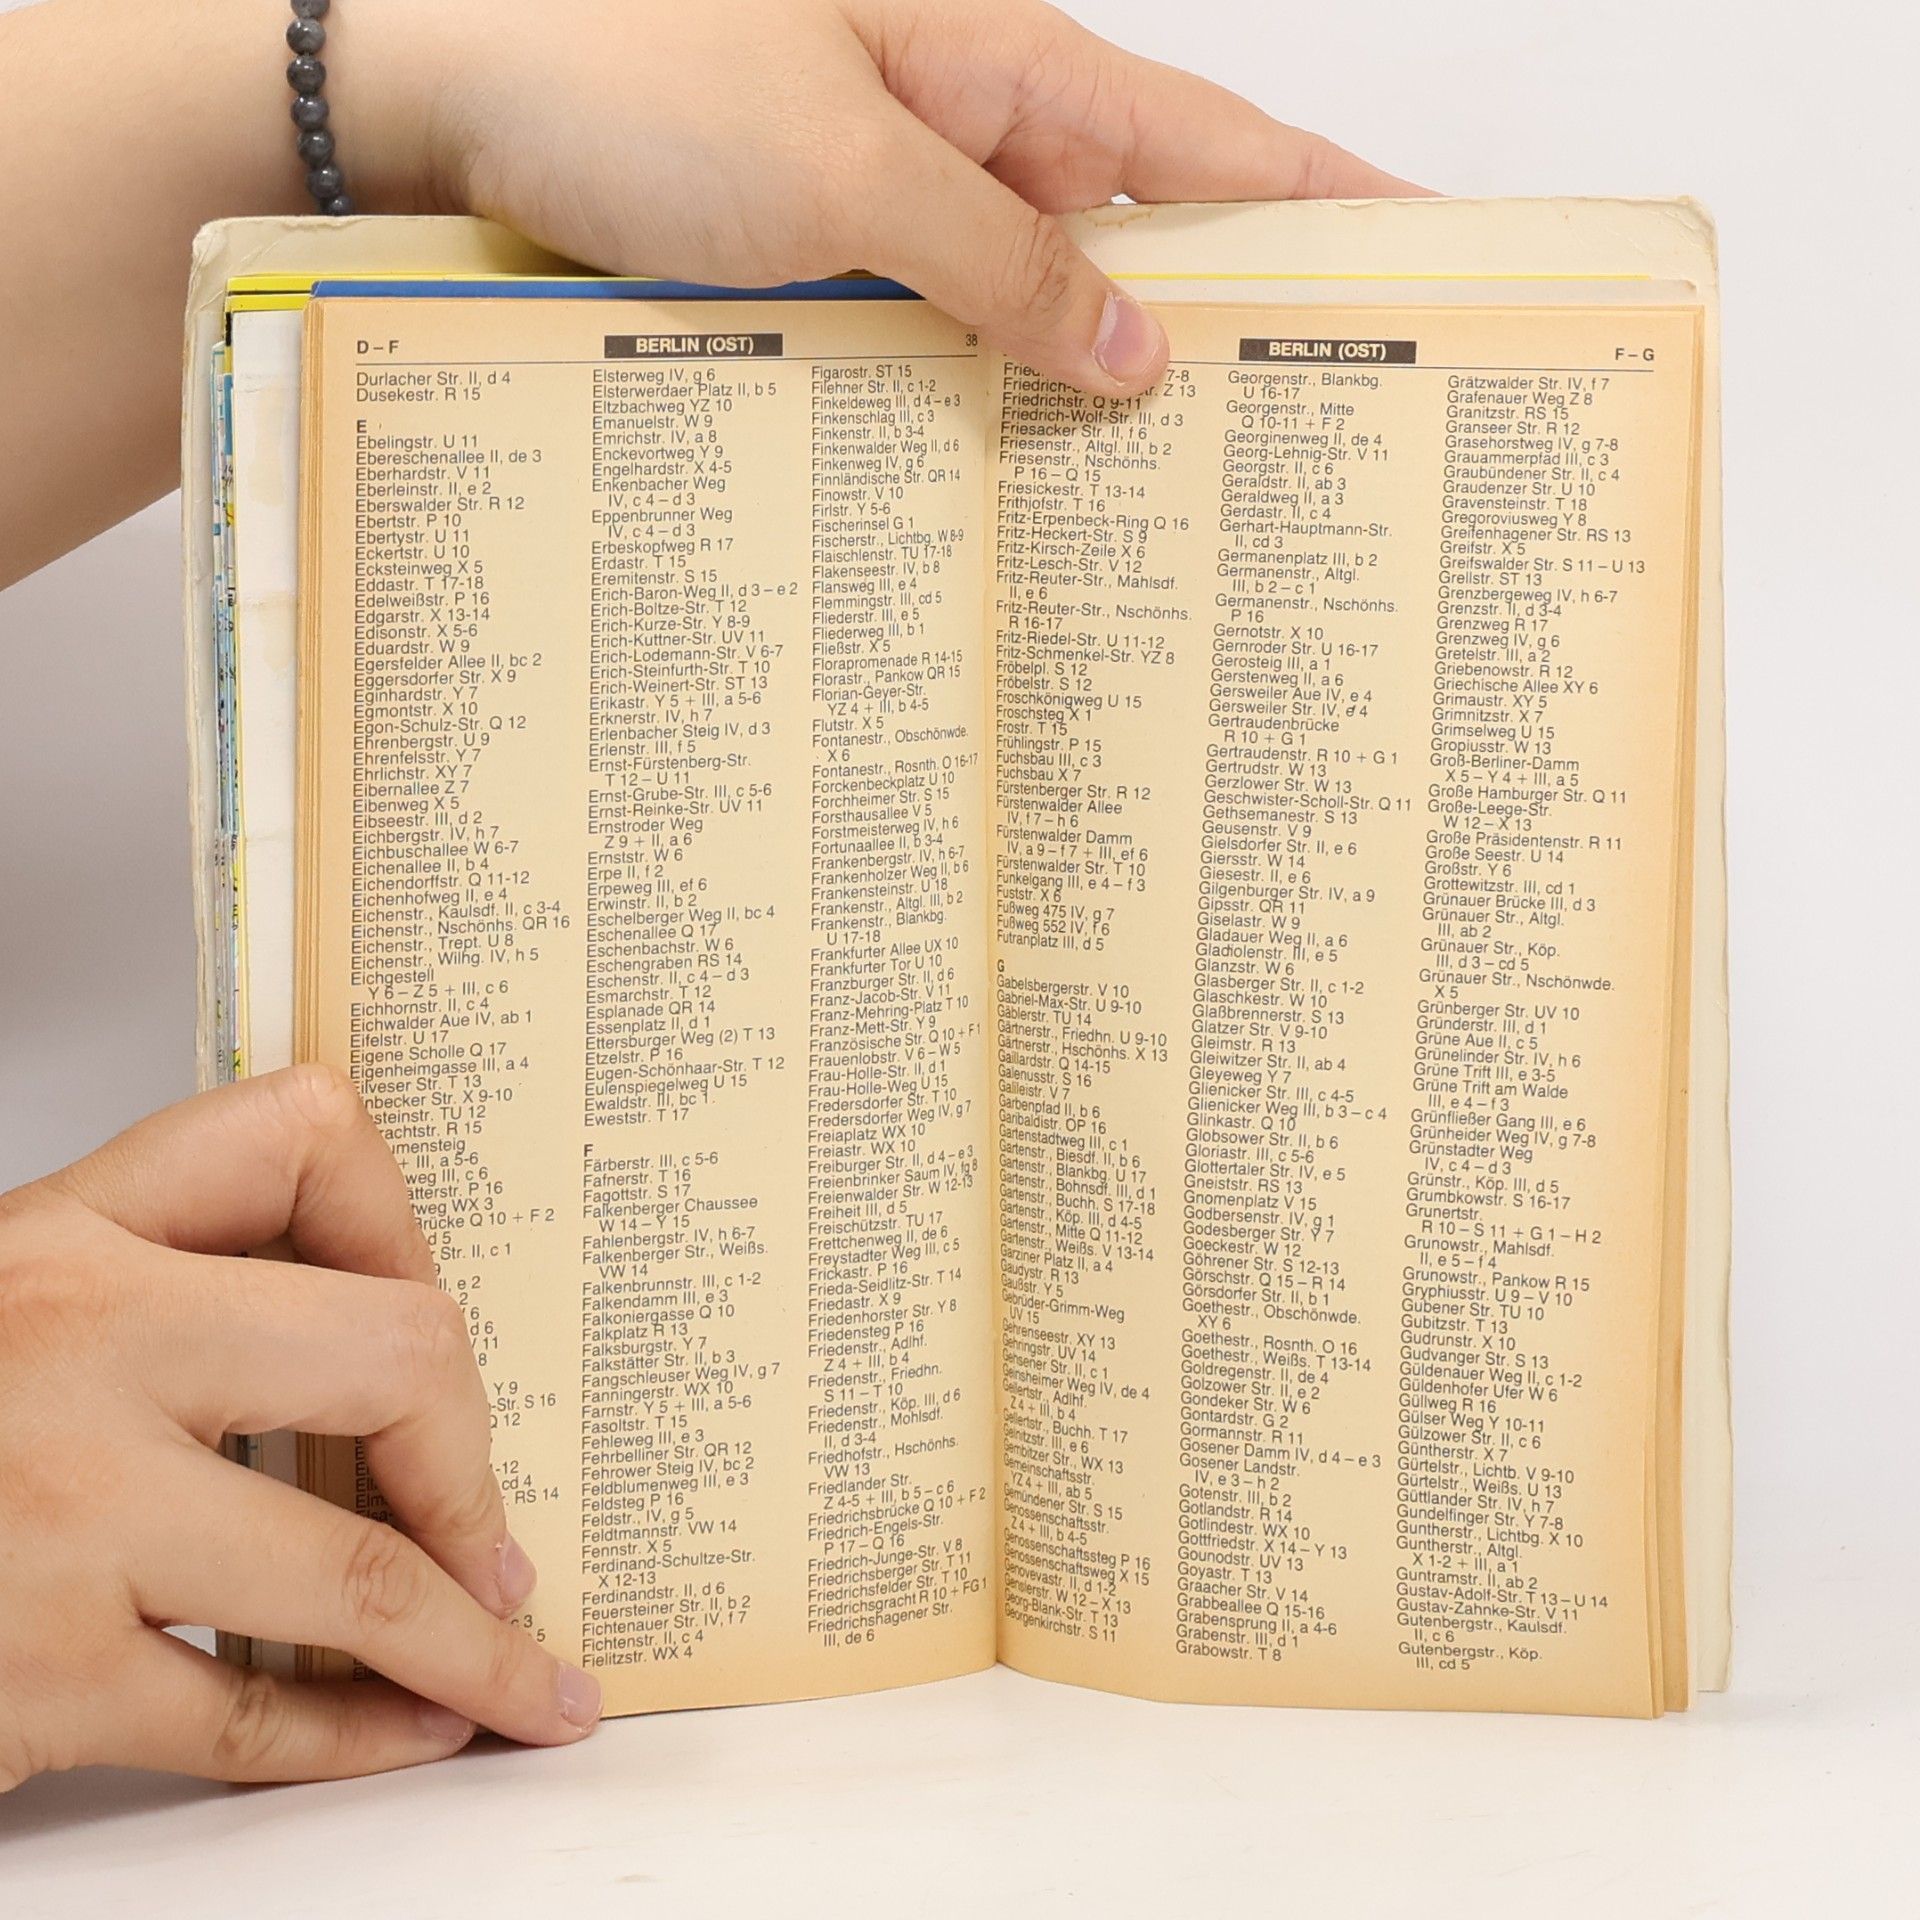 D – F
BERLIN (OST)
38
Durlacher Str. II, d 4
Dusekestr. R 15
E
Ebelingstr. U 11
Ebereschenallee II, de 3
Eberhardstr. V 11
Eberleinstr. II, e 2
Eberswalder Str. R 12
Ebertstr. P 10
Ebertystr. U 11
Eckertstr. U 10
Ecksteinweg X 5
Eddastr. T 17-18
Edelweißstr. P 16
Edgarstr. X 13-14
Edisonstr. X 5-6
Eduardstr. W 9
Egersfelder Allee II, bc 2
Eggersdorfer Str. X 9
Eginhardstr. Y 7
Egmontstr. X 10
Egon-Schulz-Str. Q 12
Ehrenbergstr. U 9
Ehrenfelsstr. Y 7
Ehrlichstr. XY 7
Eibernallee Z 7
Eibenweg X 5
Eibseestr. III, d 2
Eichbergstr. IV, h 7
Eichbuschallee W 6-7
Eichenallee II, b 4
Eichendorffstr. Q 11-12
Eichenhofweg II, e 4
Eichenstr., Kaulsdf. II, c 3-4
Eichenstr., Nschönhs. QR 16
Eichenstr., Trept. U 8
Eichenstr., Wilhg. IV, h 5
Eichgestell
Y 6 – Z 5 + III, c 6
Eichhornstr. II, c 4
Eichwalder Aue IV, ab 1
Eifelstr. U 17
Eigene Scholle Q 17
Eigenheimgasse III, a 4
Eilveser Str. T 13
nbecker Str. X 9-10
steinstr. TU 12
rachtstr. R 15
umensteig
+ III, a 5-6
weg III, c 6
tterstr. P 16
tweg WX 3
Brücke Q 10 + F 2
d 5
Str. II, c 1
II, e 2
V 11
Y 9
-Str. S 16
Q 12
-12
cd 4
RS 14
Elsterweg IV, g 6
Elsterwerdaer Platz II, b 5
Eltzbachweg YZ 10
Emanuelstr. W 9
Emrichstr. IV, a 8
Enckevortweg Y 9
Engelhardstr. X 4-5
Enkenbacher Weg
IV, c 4 – d 3
Eppenbrunner Weg
IV, c 4 – d 3
Erbeskopfweg R 17
Erdastr. T 15
Eremitenstr. S 15
Erich-Baron-Weg II, d 3 – e 2
Erich-Boltze-Str. T 12
Erich-Kurze-Str. Y 8-9
Erich-Kuttner-Str. UV 11
Erich-Lodemann-Str. V 6-7
Erich-Steinfurth-Str. T 10
Erich-Weinert-Str. ST 13
Erikastr. Y 5 + III, a 5-6
Erknerstr. IV, h 7
Erlenbacher Steig IV, d 3
Erlenstr. III, f 5
Ernst-Fürstenberg-Str.
T 12 – U 11
Ernst-Grube-Str. III, c 5-6
Ernst-Reinke-Str. UV 11
Ernstroder Weg
Z 9 + II, a 6
Ernststr. W 6
Erpe II, f 2
Erpeweg III, ef 6
Erwinstr. II, b 2
Eschelberger Weg II, bc 4
Eschenallee Q 17
Eschenbachstr. W 6
Eschengraben RS 14
Eschenstr. II, c 4 – d 3
Esmarchstr. T 12
Esplanade QR 14
Essenplatz II, d 1
Ettersburger Weg (2) T 13
Etzelstr. P 16
Eugen-Schönhaar-Str. T 12
Eulenspiegelweg U 15
Ewaldstr. III, bc 1
Eweststr. T 17
F
Färberstr. III, c 5-6
Fafnerstr. T 16
Fagottstr. S 17
Falkenberger Chaussee
W 14 – Y 15
Fahlenbergstr. IV, h 6-7
Falkenberger Str., Weißs.
VW 14
Falkenbrunnstr. III, c 1-2
Falkendamm III, e 3
Falkoniergasse Q 10
Falkplatz R 13
Falksburgstr. Y 7
Falkstätter Str. II, b 3
Fangschleuser Weg IV, g 7
Fanningerstr. WX 10
Farnstr. Y 5 + III, a 5-6
Fasoltstr. T 15
Fehleweg III, e 3
Fehrbelliner Str. QR 12
Fehrower Steig IV, bc 2
Feldblumenweg III, e 3
Feldsteg P 16
Feldstr., IV, g 5
Feldtmannstr. VW 14
Fennstr. X 5
Ferdinand-Schultze-Str.
X 12-13
Ferdinandstr. II, d 6
Feuersteiner Str. II, b 2
Fichtenauer Str. IV, f 7
Fichtenstr. II, c 4
Fielitzstr. WX 4
Figarostr. ST 15
Filehner Str. II, c 1-2
Finkeldeweg III, d 4 – e 3
Finkenschlag III, c 3
Finkenstr. II, b 3-4
Finkenwalder Weg II, d 6
Finkenweg IV, g 6
Finnländische Str. QR 14
Finowstr. V 10
Firlstr. Y 5-6
Fischerinsel G 1
Fischerstr., Lichtbg. W 8-9
Flaischlenstr. TU 17-18
Flakenseestr. IV, b 8
Flansweg III, e 4
Flemmingstr. III, cd 5
Fliederstr. III, e 5
Fliederweg III, b 1
Fließstr. X 5
Florapromenade R 14-15
Florastr., Pankow QR 15
Florian-Geyer-Str.
YZ 4 + III, b 4-5
Flutstr. X 5
Fontanestr., Obschönwde.
X 6
Fontanestr., Rosnth. O 16-17
Forckenbeckplatz U 10
Forchheimer Str. S 15
Forsthausallee V 5
Forstmeisterweg IV, h 6
Fortunaallee II, b 3-4
Frankenbergstr. IV, h 6-7
Frankenholzer Weg II, b 6
Frankensteinstr. U 18
Frankenstr., Altgl. III, b 2
Frankenstr., Blankbg.
U 17-18
Frankfurter Allee UX 10
Frankfurter Tor U 10
Franzburger Str. II, d 6
Franz-Jacob-Str. V 11
Franz-Mehring-Platz T 10
Franz-Mett-Str. Y 9
Französische Str. Q 10 + F 1
Frauenlobstr. V 6 – W 5
Frau-Holle-Str. II, d 1
Frau-Holle-Weg U 15
Fredersdorfer Str. T 10
Fredersdorfer Weg IV, g 7
Freiaplatz WX 10
Freiastr. WX 10
Freiburger Str. II, d 4 – e 3
Freienbrinker Saum IV, fg 8
Freienwalder Str. W 12-13
Freiheit III, d 5
Freischützstr. TU 17
Frettchenweg II, de 6
Freystadter Weg III, c 5
Frickastr. P 16
Frieda-Seidlitz-Str. T 14
Friedastr. X 9
Friedenhorster Str. Y 8
Friedensteg P 16
Friedenstr., Adlhf.
Z 4 + III, b 4
Friedenstr., Friedhn.
S 11 – T 10
Friedenstr., Köp. III, d 6
Friedenstr., Mohlsdf.
II, d 3-4
Friedhofstr., Hschönhs.
VW 13
Friedlander Str.
Z 4-5 + III, b 5 – c 6
Friedrichsbrücke Q 10 + F 2
Friedrich-Engels-Str.
P 17 – Q 16
Friedrich-Junge-Str. V 8
Friedrichsberger Str. T 11
Friedrichsfelder Str. T 10
Friedrichsgracht R 10 + FG 1
Friedrichshagener Str.
III, de 6
BERLIN (OST)
F – G
Fried 7-8
Friedrich-S tr. Z 13
Friedrichstr. Q 9-11
Friedrich-Wolf-Str. III, d 3
Friesacker Str. II, f 6
Friesenstr., Altgl. III, b 2
Friesenstr., Nschönhs.
P 16 – Q 15
Friesickestr. T 13-14
Frithjofstr. T 16
Fritz-Erpenbeck-Ring Q 16
Fritz-Heckert-Str. S 9
Fritz-Kirsch-Zeile X 6
Fritz-Lesch-Str. V 12
Fritz-Reuter-Str., Mahlsdf.
II, e 6
Fritz-Reuter-Str., Nschönhs.
R 16-17
Fritz-Riedel-Str. U 11-12
Fritz-Schmenkel-Str. YZ 8
Fröbelpl. S 12
Fröbelstr. S 12
Froschkönigweg U 15
Froschsteg X 1
Frostr. T 15
Frühlingstr. P 15
Fuchsbau III, c 3
Fuchsbau X 7
Fürstenberger Str. R 12
Fürstenwalder Allee
IV, f 7 – h 6
Fürstenwalder Damm
IV, a 9 – f 7 + III, ef 6
Fürstenwalder Str. T 10
Funkelgang III, e 4 – f 3
Fuststr. X 6
Fußweg 475 IV, g 7
Fußweg 552 IV, f 6
Futranplatz III, d 5
G
Gabelsbergerstr. V 10
Gabriel-Max-Str. U 9-10
Gäblerstr. TU 14
Gärtnerstr., Friedhn. U 9-10
Gärtnerstr., Hschönhs. X 13
Gaillardstr. Q 14-15
Galenusstr. S 16
Galileistr. V 7
Garbenpfad II, b 6
Garibaldistr. OP 16
Gartenstadtweg III, c 1
Gartenstr., Biesdf. II, b 6
Gartenstr., Blankbg. U 17
Gartenstr., Bohnsdf. III, d 1
Gartenstr., Buchh. S 17-18
Gartenstr., Köp. III, d 4-5
Gartenstr., Mitte Q 11-12
Gartenstr., Weißs. V 13-14
Garziner Platz II, a 4
Gaudystr. R 13
Gaußstr. Y 5
Gebrüder-Grimm-Weg
UV 15
Gehrenseestr. XY 13
Gehringstr. UV 14
Gehsener Str. II, c 1
Geinsheimer Weg IV, de 4
Gellertstr., Adlhf.
Z 4 + III, b 4
Gellertstr., Buchh. T 17
Gelnitzstr. III, e 6
Gembitzer Str., WX 13
Gemeinschaftsstr.
YZ 4 + III, ab 5
Gemündener Str. S 15
Genossenschaftsstr.
Z 4 + III, b 4-5
Genossenschaftssteg P 16
Genossenschaftsweg X 15
Genovevastr. II, d 1-2
Genslerstr. W 12 – X 13
Georg-Blank-Str. T 13
Georgenkirchstr. S 11
Georgenstr., Blankbg.
U 16-17
Georgenstr., Mitte
Q 10-11 + F 2
Georginenweg II, de 4
Georg-Lehnig-Str. V 11
Georgstr. II, c 6
Geraldstr. II, ab 3
Geraldweg II, a 3
Gerdastr. II, c 4
Gerhart-Hauptmann-Str.
II, cd 3
Germanenplatz III, b 2
Germanenstr., Altgl.
III, b 2 – c 1
Germanenstr., Nschönhs.
P 16
Gernotstr. X 10
Gernroder Str. U 16-17
Gerosteig III, a 1
Gerstenweg II, a 6
Gersweiler Aue IV, e 4
Gersweiler Str. IV, d 4
Gertraudenbrücke
R 10 + G 1
Gertraudenstr. R 10 + G 1
Gertrudstr. W 13
Gerzlower Str. W 13
Geschwister-Scholl-Str. Q 11
Gethsemanestr. S 13
Geusenstr. V 9
Gielsdorfer Str. II, e 6
Giersstr. W 14
Giesestr. II, e 6
Gilgenburger Str. IV, a 9
Gipsstr. QR 11
Giselastr. W 9
Gladauer Weg II, a 6
Gladiolenstr. III, e 5
Glanzstr. W 6
Glasberger Str. II, c 1-2
Glaschkestr. W 10
Glaßbrennerstr. S 13
Glatzer Str. V 9-10
Gleimstr. R 13
Gleiwitzer Str. II, ab 4
Gleyeweg Y 7
Glienicker Str. III, c 4-5
Glienicker Weg III, b 3 – c 4
Glinkastr. Q 10
Globsower Str. II, b 6
Gloriastr. III, c 5-6
Glottertaler Str. IV, e 5
Gneiststr. RS 13
Gnomenplatz V 15
Godbersenstr. IV, g 1
Godesberger Str. Y 7
Goeckestr. W 12
Göhrener Str. S 12-13
Görschstr. Q 15 – R 14
Görsdorfer Str. II, b 1
Goethestr., Obschönwde.
XY 6
Goethestr., Rosnth. O 16
Goethestr., Weißs. T 13-14
Goldregenstr. II, de 4
Golzower Str. II, e 2
Gondeker Str. W 6
Gontardstr. G 2
Gormannstr. R 11
Gosener Damm IV, d 4 – e 3
Gosener Landstr.
IV, e 3 – h 2
Gotenstr. III, b 2
Gotlandstr. R 14
Gotlindestr. WX 10
Gottfriedstr. X 14 – Y 13
Gounodstr. UV 13
Goyastr. T 13
Graacher Str. V 14
Grabbeallee Q 15-16
Grabensprung II, a 4-6
Grabenstr. III, d 1
Grabowstr. T 8
Grätzwalder Str. IV, f 7
Grafenauer Weg Z 8
Granitzstr. RS 15
Granseer Str. R 12
Grasehorstweg IV, g 7-8
Grauammerpfad III, c 3
Graubündener Str. II, c 4
Graudenzer Str. U 10
Gravensteinstr. T 18
Gregoroviusweg Y 8
Greifenhagener Str. RS 13
Greifstr. X 5
Greifswalder Str. S 11 – U 13
Grellstr. ST 13
Grenzbergeweg IV, h 6-7
Grenzstr. II, d 3-4
Grenzweg R 17
Grenzweg IV, g 6
Gretelstr. III, a 2
Griebenowstr. R 12
Griechische Allee XY 6
Grimaustr. XY 5
Grimnitzstr. X 7
Grimselweg U 15
Gropiusstr. W 13
Groß-Berliner-Damm
X 5 – Y 4 + III, a 5
Große Hamburger Str. Q 11
Große-Leege-Str.
W 12 – X 13
Große Präsidentenstr. R 11
Große Seestr. U 14
Großstr. Y 6
Grottewitzstr. III, cd 1
Grünauer Brücke III, d 3
Grünauer Str., Altgl.
III, ab 2
Grünauer Str., Köp.
III, d 3 – cd 5
Grünauer Str., Nschönwde.
X 5
Grünberger Str. UV 10
Gründerstr. III, d 1
Grüne Aue II, c 5
Grünelinder Str. IV, h 6
Grüne Trift III, e 3-5
Grüne Trift am Walde
III, e 4 – f 3
Grünfließer Gang III, e 6
Grünheider Weg IV, g 7-8
Grünstadter Weg
IV, c 4 – d 3
Grünstr., Köp. III, d 5
Grumbkowstr. S 16-17
Grunertstr.
R 10 – S 11 + G 1 – H 2
Grunowstr., Mahlsdf.
II, e 5 – f 4
Grunowstr., Pankow R 15
Gryphiusstr. U 9 – V 10
Gubener Str. TU 10
Gubitzstr. T 13
Gudrunstr. X 10
Gudvanger Str. S 13
Güldenauer Weg II, c 1-2
Güldenhofer Ufer W 6
Güllweg R 16
Gülser Weg Y 10-11
Gülzower Str. II, c 6
Güntherstr. X 7
Gürtelstr., Lichtb. V 9-10
Gürtelstr., Weißs. U 13
Güttlander Str. IV, h 7
Gundelfinger Str. Y 7-8
Guntherstr., Lichtbg. X 10
Guntherstr., Altgl.
X 1-2 + III, a 1
Guntramstr. II, ab 2
Gustav-Adolf-Str. T 13 – U 14
Gustav-Zahnke-Str. V 11
Gutenbergstr., Kaulsdf.
II, c 6
Gutenbergstr., Köp.
III, cd 5